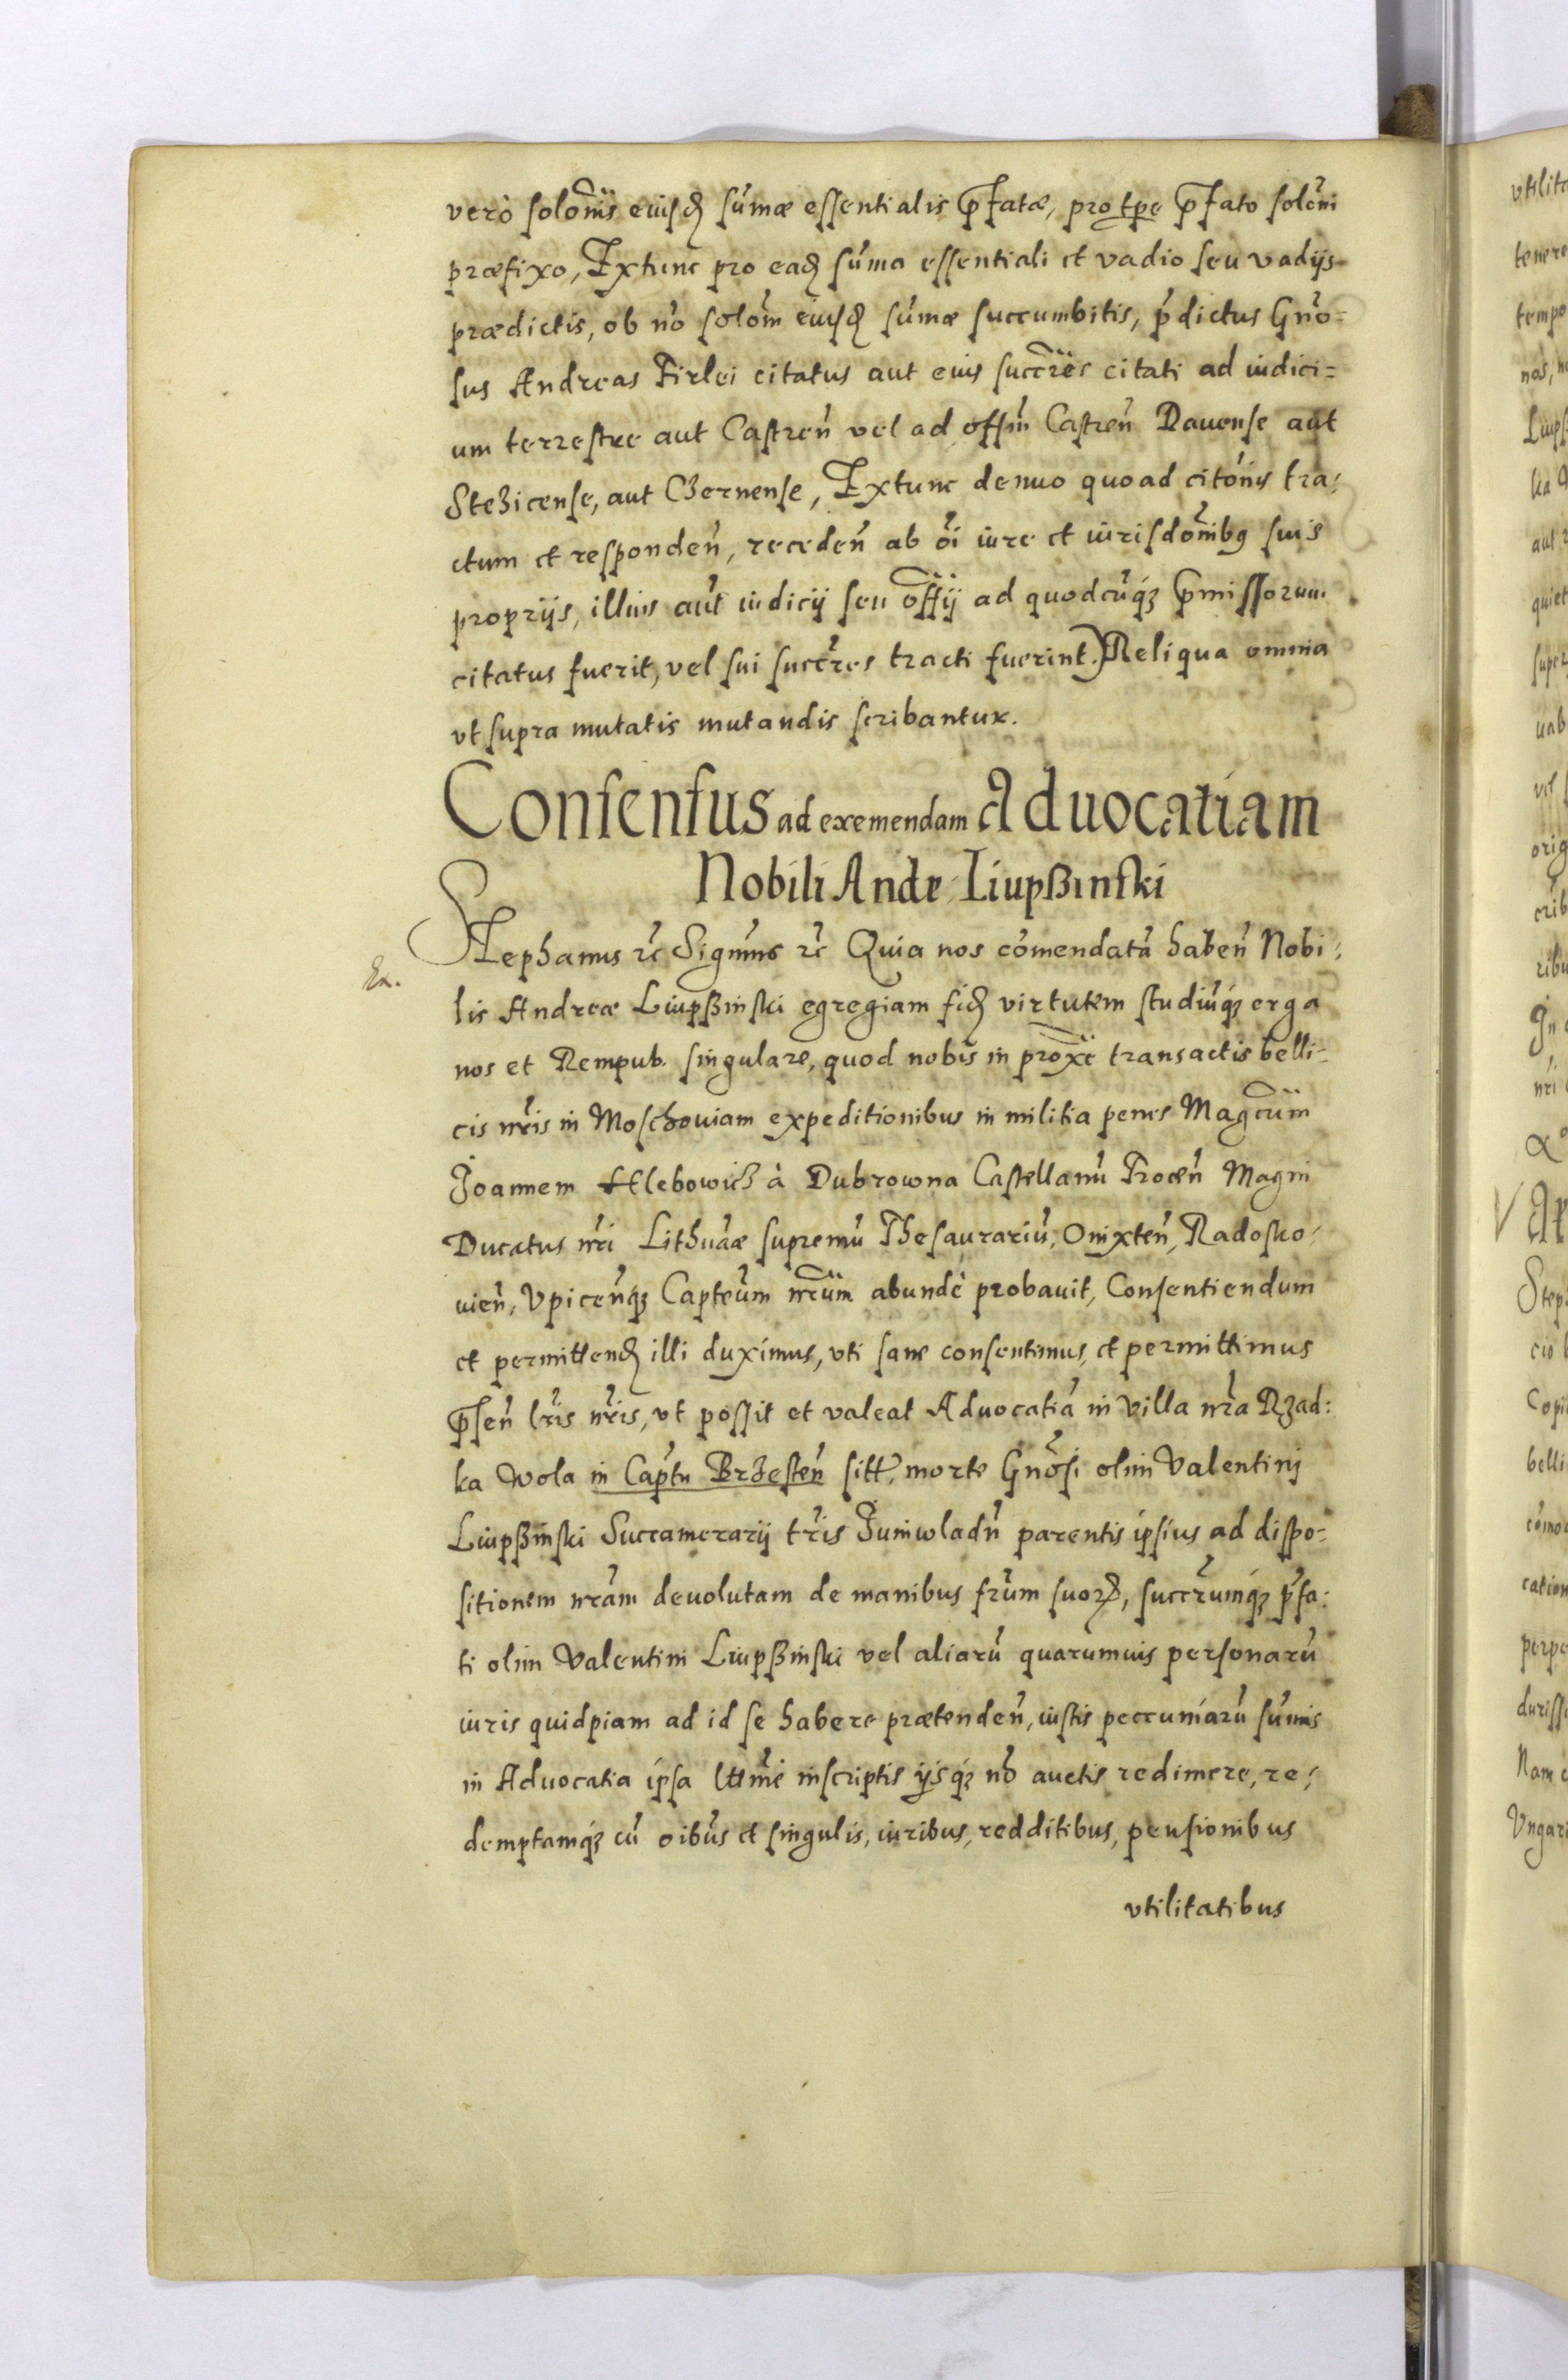 verò solonis eiusd sumæ essentialis pfatæ, pro tpe pfato soloni
præfixo, Extunc pro ead suma essentiali et vadio seu vadijs
prædictis, ob no solom eiusd sumæ succumbitis, pdictus Gno=
sus Andreas Firlei citatus aut eius succres citati ad iudici=
um terrestre aut Castren vel ad offm Castren Rauense aut
Stezicense, aut Czernense, Extunc denuo quoad citonis tra:
ctum et responden, receden ab oi iure et iurisdonibq suis
proprijs, illius aut iudicij seu offij ad quodcuqz pmissorum
citatus fuerit, vel sui succres tracti fuerint.) Reliqua omnia
vt supra mutatis mutandis scribantur.
Consensus ad exemendam Aduocatiam
Nobili Andr Liupßinski
Stephanus rc Signmus rc Quia nos comendata haben Nobi:
lis Andreæ Liupßinski egregiam fid virtutem studiuqz erga
nos et Rempub. singulare, quod nobis in proxe transactis belli=
cis nris in Moschouiam expeditionibus in militia penes Magcum
Joannem Hlebowicz à Dubrowna Castellanu Trocen Magni
Ducatus nri Lithuaæ supremu Thesaurariu, Onixten, Radosko:
uien, Vpicenqz Capteum nrum abundè probauit, Consentiendum
et permittend illi duximus, vti sane consentimus, et permittimus
psen lris nris, vt possit et valeat Aduocatia in Villa nra Rzad:
ka Wola in Captu Brzesten sitt, morte Gnosi olim Valentinj
Liupßinski Succamerarij tris Juniwladn parentis ipsius ad dispo=
sitionem nram deuolutam de manibus frum suor, succrumqz pfa:
ti olim Valentini Liupßinski vel aliaru quarumuis personaru
iuris quidpiam ad id se habere prætenden, iustis peccuniaru sumis
in Aduocatia ipsa lttme inscriptis ijsqz no auctis redimere, re:
demptamqz cu oibus et singulis, iuribus, redditibus, pensionibus
vtilitatibus